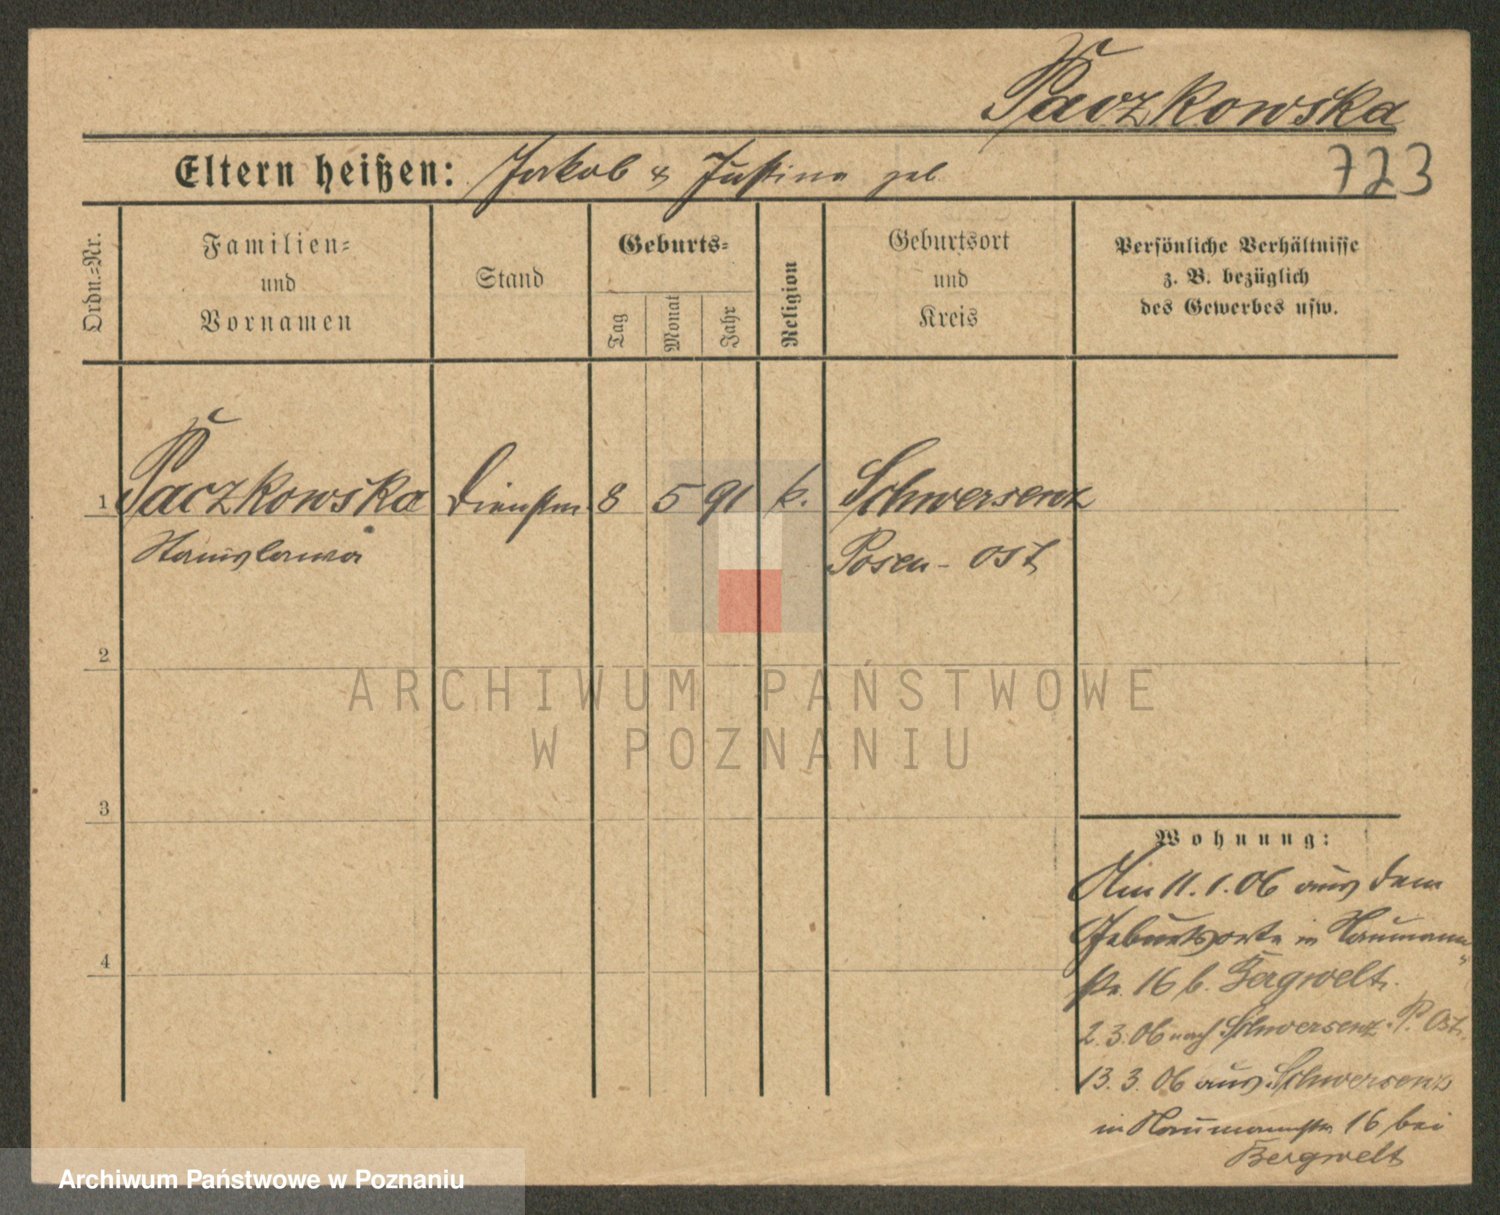 Paczkowska
Eltern heißen: Jakob & Justina geb.
723
Ordn.=Nr.
Familien=
und
Vornamen
Stand
Geburts=
Tag
Monat
Jahr
Religion
Geburtsort
und
Kreis
Persönliche Verhältnisse
z. B. bezüglich
des Gewerbes usw.
1 Paczkowska Dienstm. 8 5 91 k. Schwersenz
Stanislawa Posen - Ost
2
3
4
Wohnung:
Am 11.1.06 aus dem
Geburtsorte in Naumann
str. 16 b. Bergwelt.
2.3.06 nach Schwersenz. P. Ost.
13.3.06 aus Schwersenz
in Naumannstr. 16 bei
Bergwelt
ARCHIWUM PAŃSTWOWE
W POZNANIU
Archiwum Państwowe w Poznaniu